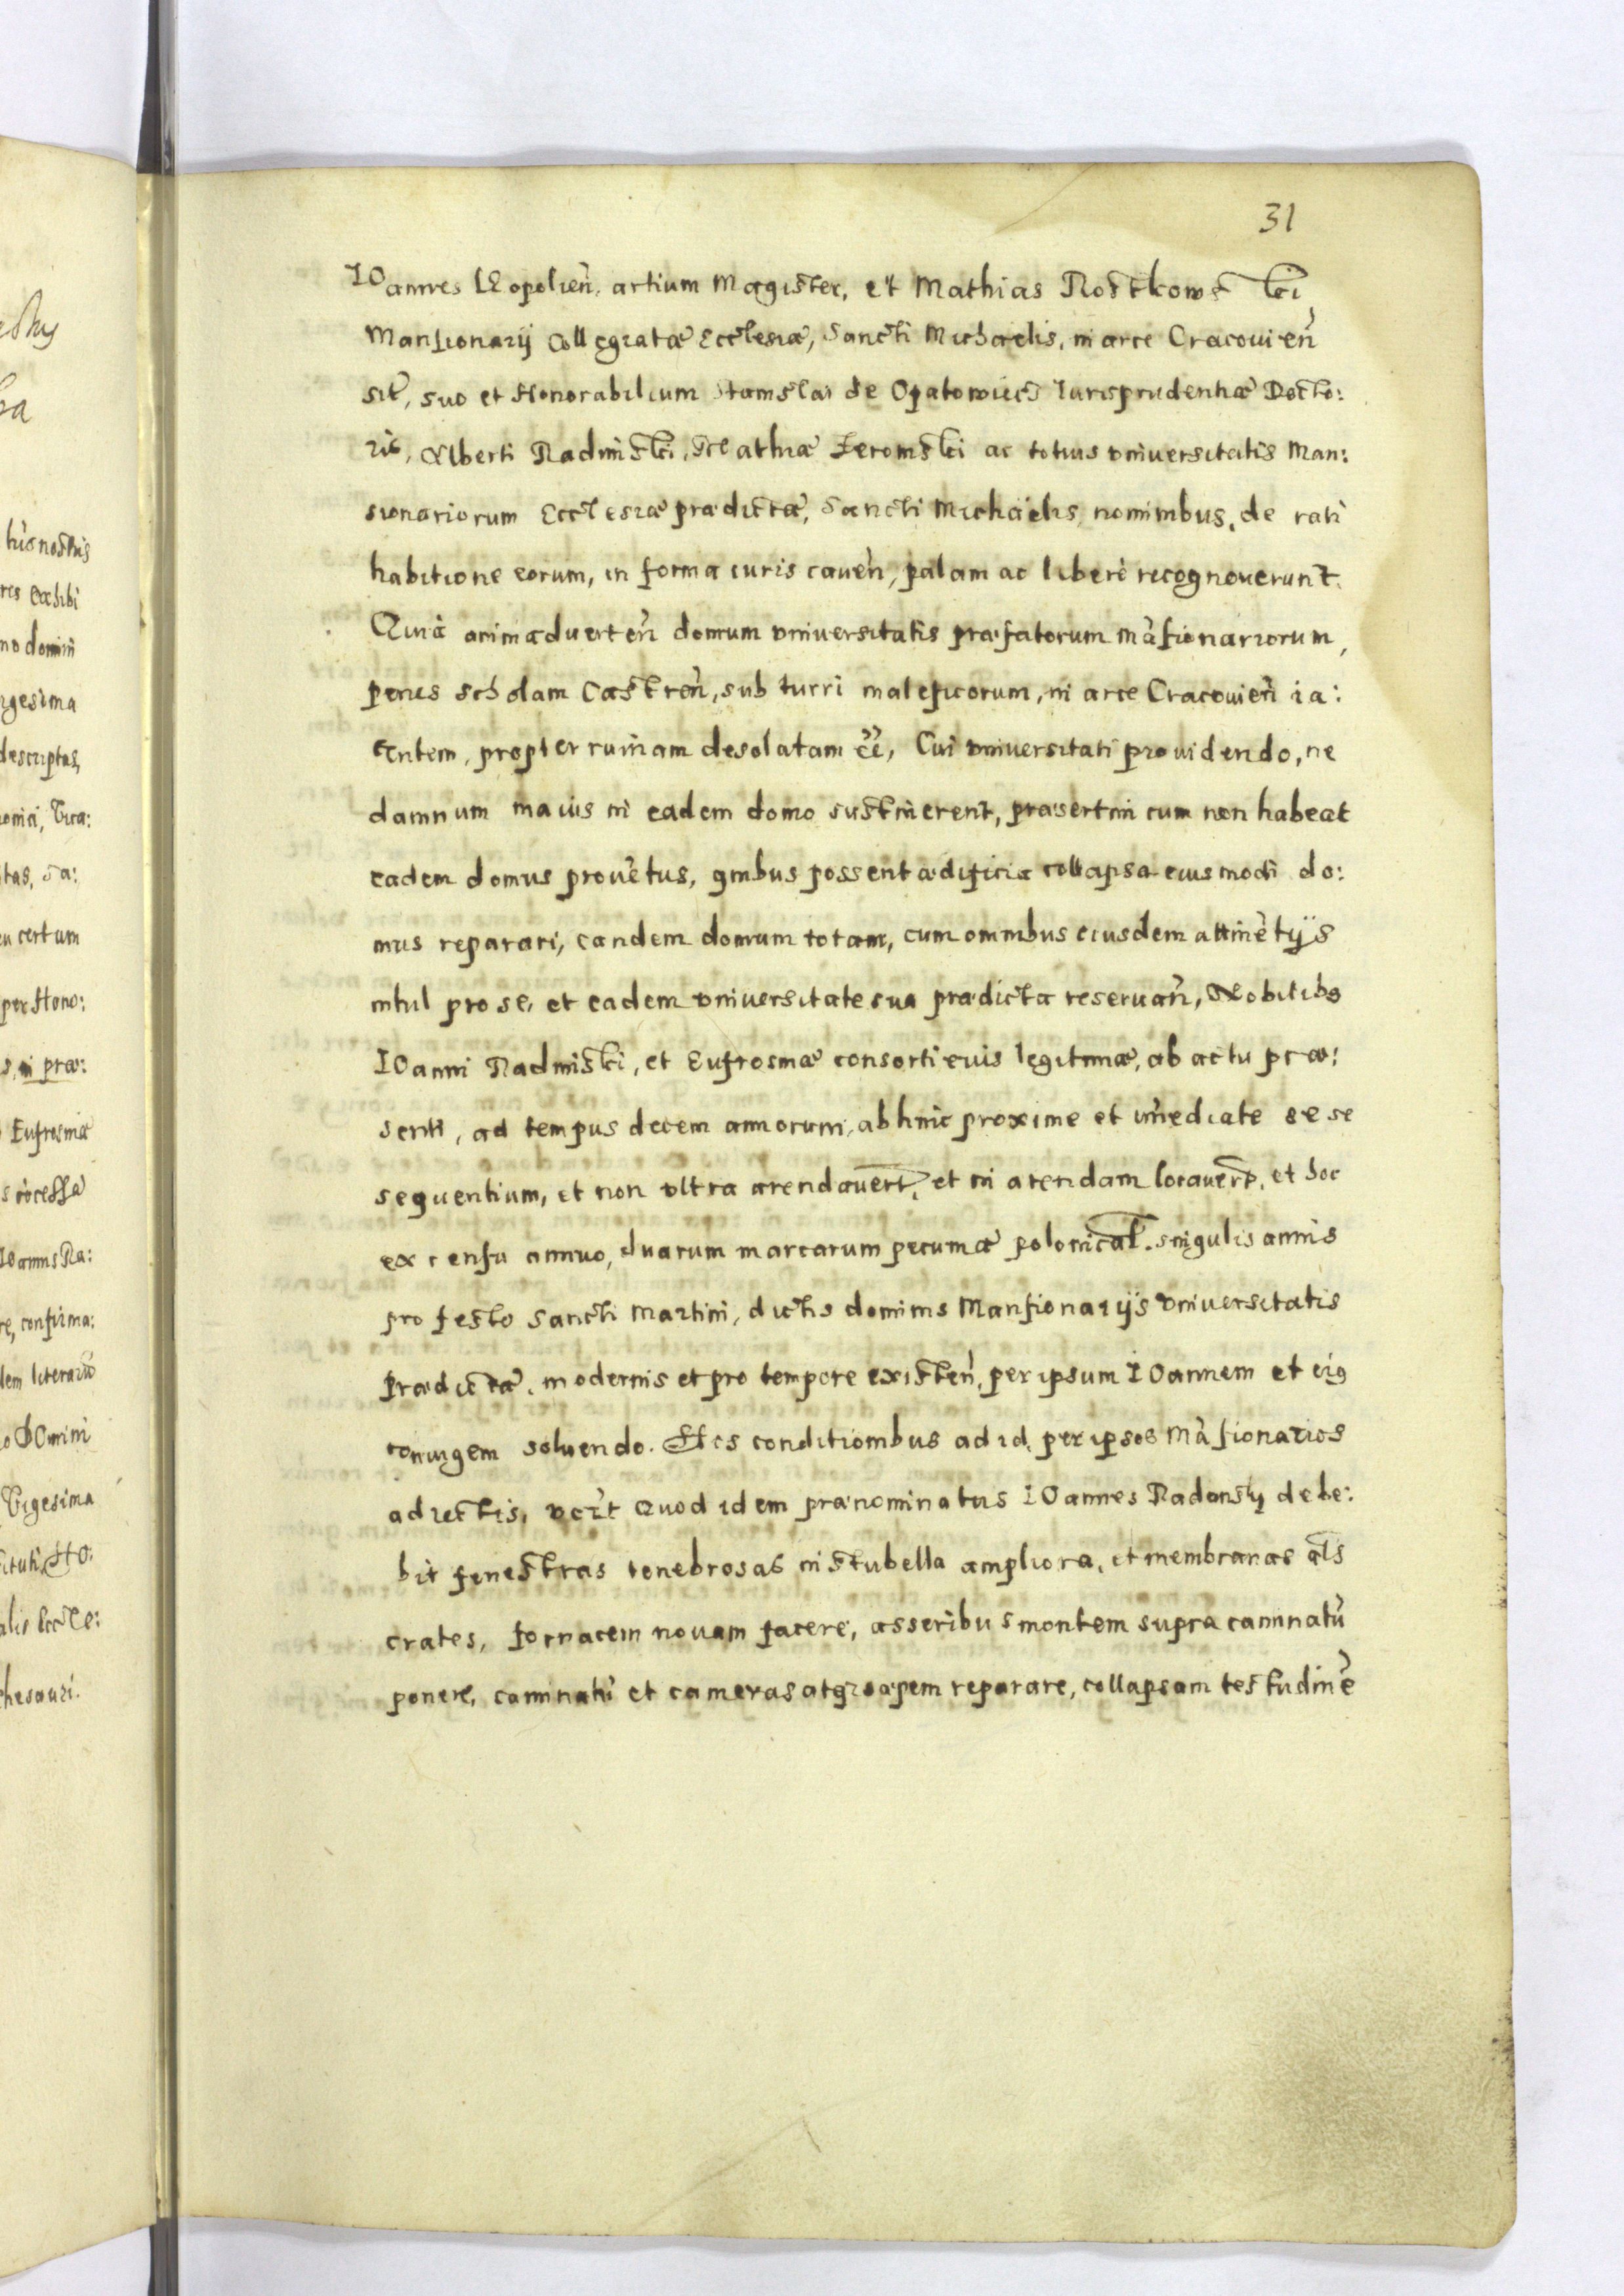 31
IOannes LEopolien̄, artium Magister, et Mathias Rostkowski
Mansionarij Collegiatæ Ecclesiæ, Sancti Michaelis, in arce Cracouien̄
sit̄, suo et Honorabilium Stanislai de Opatowiecz Iurisprudentiæ Docto:
ris, Alberti Radinski, Mathiæ Zeromski ac totius vniuersitatis Man:
sionariorum Ecclesiæ prædictæ, Sancti Michaëlis, nominibus, de rati
habitione eorum, in forma iuris cauen̄, palam ac liberè recognouerunt.
Quià animaduerten̄ domum vniuersitatis præfatorum mãsionariorum,
penes scholam Castren̄, sub turri maleficorum, in arce Cracouien̄ ia:
centem, propter ruinam desolatam ēē, Cui vniuersitati prouidendo, ne
damnum maius in eadem domo sustinerent, præsertim cum non habeat
eadem domus prouētus, quibus possent ædificia collapsa eiusmodi do:
mus reparari, eandem domum totam, cum omnibus eiusdem attinētijs
nihil pro se, et eadem vniuersitate sua prædicta reseruan̄, Nobilibus
IOanni Radinski, et Eufrosinæ consorti eius legitimæ, ab actu præ:
senti, ad tempus decem annorum, ab hinc proxime et im̄ediate sese
sequentium, et non vltra arendauerũt, et in arendam locauerũt, et hoc
ex censu annuo, duarum marcarum pecuniæ polonical. singulis annis
pro festo Sancti Martini, dictis dominis Mansionarijs vniuersitatis
prædictæ, modernis et pro tempore existen̄, per ipsum IOannem et eiꝰ
coniugem soluendo. His conditionibus ad id, per ipsos mãsionarios
adiectis, vcz̄t Quod idem prænominatus IOannes Radonsky debe:
bit fenestras tenebrosas in stubella ampliora, et membranas al̄s
crates, fornacem nouam facere, asseribus montem supra caminatũ
ponere, caminatũ et cameras atq̄ reparare, collapsam testudinē